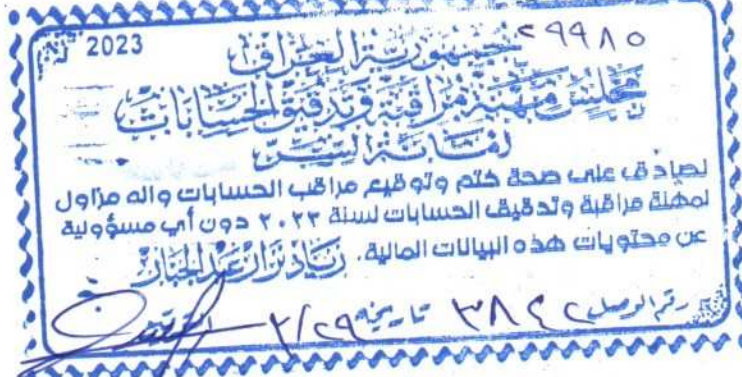 2023 ٢٩٩٨٥
جمهورية العراق
مجلس مهنة مراقبة وتدقيق الحسابات
امانة السر
نصادق على صحة ختم وتوقيع مراقب الحسابات وانه مزاول
لمهنة مراقبة وتدقيق الحسابات لسنة ٢٠٢٣ دون أي مسؤولية
عن محتويات هذه البيانات المالية. زياد نزار عبد الجبار
رقم الوصل ٣٨٤٢ تاريخه ٣/٢٩